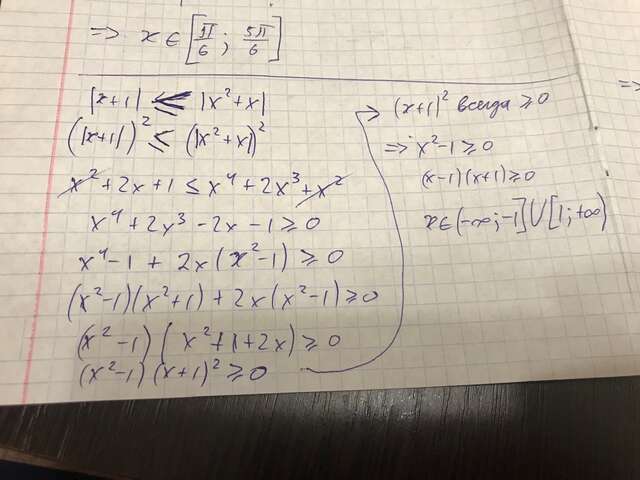 => x ∈ [π/6 ; 5π/6]
|x+1| ≤ |x²+x|
(|x+1|)² ≤ (|x²+x|)²
x² + 2x + 1 ≤ x⁴ + 2x³ + x²
x⁴ + 2x³ - 2x - 1 ≥ 0
x⁴ - 1 + 2x(x² - 1) ≥ 0
(x²-1)(x²+1) + 2x(x²-1) ≥ 0
(x²-1)(x²+1+2x) ≥ 0
(x²-1)(x+1)² ≥ 0
(x+1)² всегда ≥ 0
=> x²-1 ≥ 0
(x-1)(x+1) ≥ 0
x ∈ (-∞; -1] ∪ [1; +∞)
=>